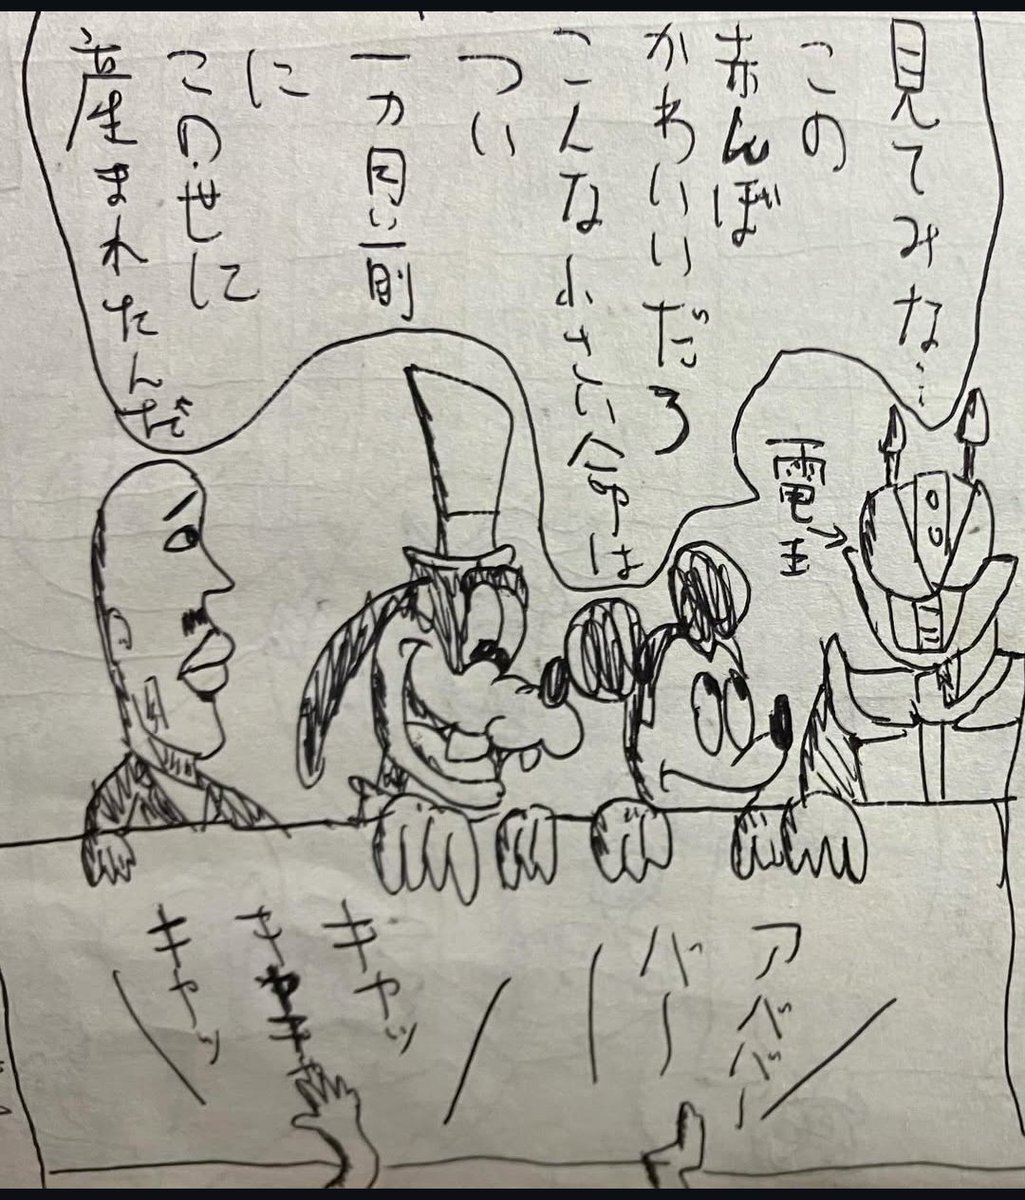 見てみな…
この
赤んぼ
かわいいだろ
こんな小さい命は
つい
一カ月い前
に
この世に
産まれたんだ
電王
アババー
バー
キャッ
キャキ
キャッ